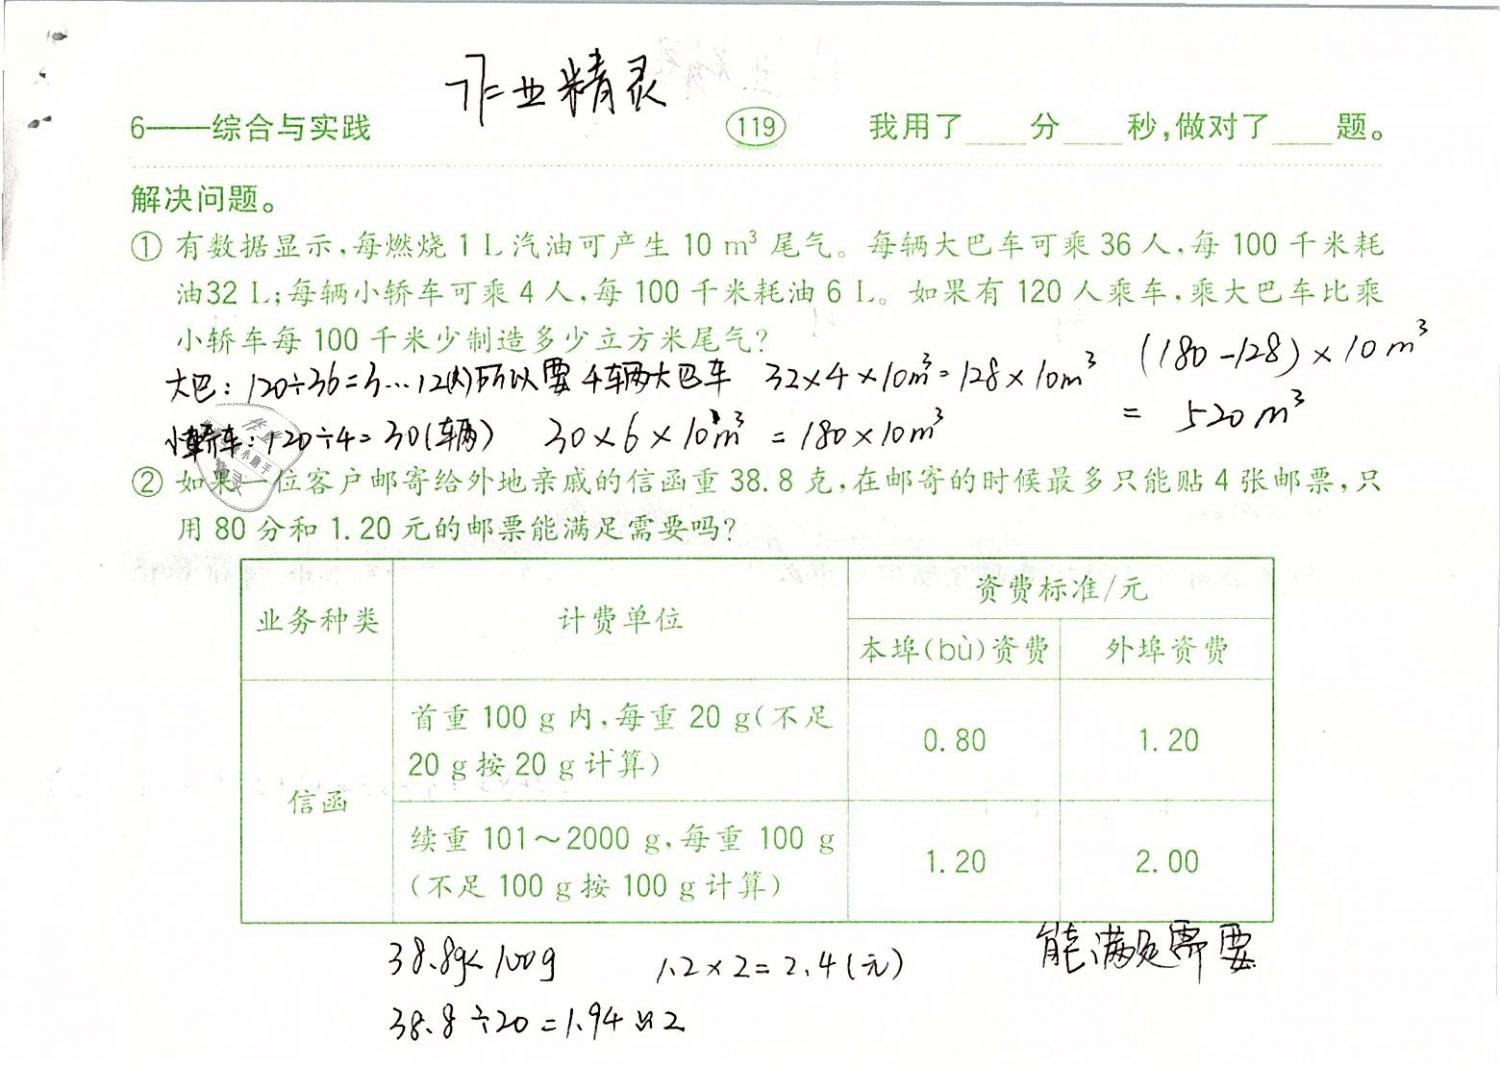 作业精灵
6——综合与实践 119 我用了____分____秒,做对了____题。
解决问题。
① 有数据显示,每燃烧 1 L 汽油可产生 10 m³ 尾气。每辆大巴车可乘 36 人,每 100 千米耗
油32 L;每辆小轿车可乘 4 人,每 100 千米耗油 6 L。如果有 120 人乘车,乘大巴车比乘
小轿车每 100 千米少制造多少立方米尾气?
大巴:120÷36=3…12(人)所以要4辆大巴车 32×4×10m³=128×10m³ (180-128)×10m³
小轿车:120÷4=30(车辆) 30×6×10m³=180×10m³ =520m³
② 如果一位客户邮寄给外地亲戚的信函重 38.8 克,在邮寄的时候最多只能贴 4 张邮票,只
用 80 分和 1.20 元的邮票能满足需要吗?
业务种类 计费单位 资费标准/元
本埠(bù)资费 外埠资费
信函
首重 100 g 内,每重 20 g(不足
20 g 按 20 g 计算)
0.80 1.20
续重 101～2000 g,每重 100 g
(不足 100 g 按 100 g 计算)
1.20 2.00
38.8g<100g 1.2×2=2.4(元) 能满足需要
38.8÷20=1.94≈2